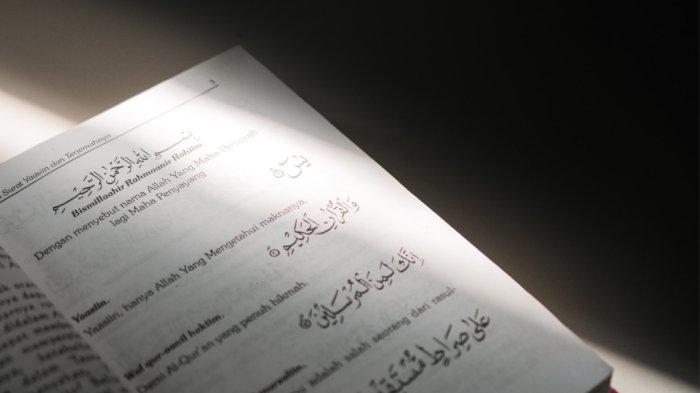 Surat Yaasiin dan Terjemahnya 3
بِسْمِ اللّٰهِ الرَّحْمٰنِ الرَّحِيْمِ
Bismillaahir Rahmaanir Rahiimi
Dengan menyebut nama Allah Yang Maha Pemurah
lagi Maha Penyayang
يٰسۤ ۝١
Yaasiin.
Yaasiin, hanya Allah Yang Mengetahui maknanya.
وَالْقُرْاٰنِ الْحَكِيْمِ ۝٢
Wal qur-aanil hakiim.
Demi Al-Qur'an yang penuh hikmah.
اِنَّكَ لَمِنَ الْمُرْسَلِيْنَ ۝٣
adalah salah seorang dari rasul-
عَلٰى صِرَاطٍ مُّسْتَقِيْمٍ